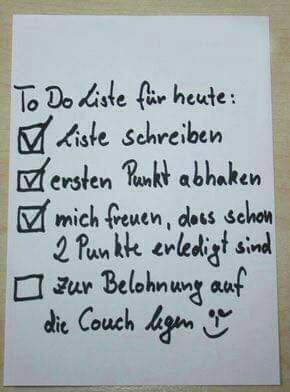 To Do Liste für heute:
Liste schreiben
ersten Punkt abhaken
mich freuen, dass schon
2 Punkte erledigt sind
Zur Belohnung auf
die Couch legen